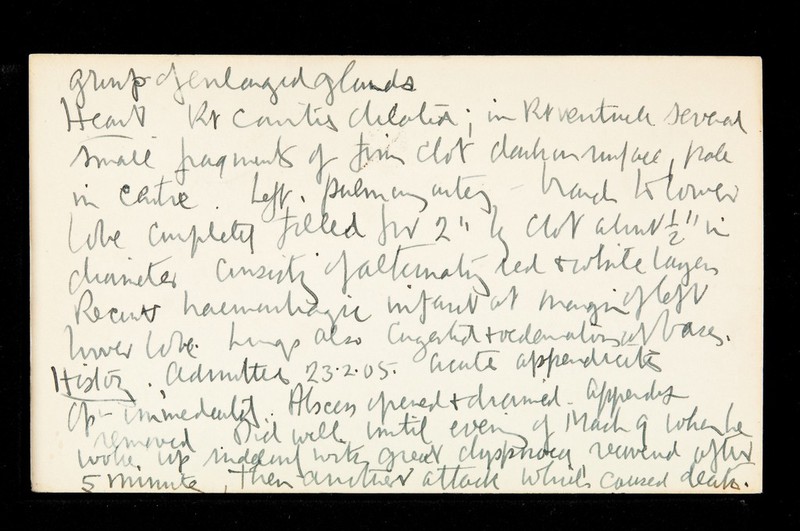 group of enlarged glands
Heart Rt cavities dilated; in Rt ventricle several
small fragments of firm clot dark on surface, pale
in centre. Left. pulmonary artery - branch to lower
lobe completely filled for 2" by clot about ½" in
diameter consisting of alternating red & white layers
Recent haemorrhagic infarct at margin of left
lower lobe. Lungs also congested & oedematous at bases.
History. Admitted 23.2.05. acute appendicitis
Op - immediately. Abscess opened & drained. appendix
removed Did well until evening of March 9 when he
woke up suddenly with great dyspnoea recovered after
5 minutes, then another attack which caused death.